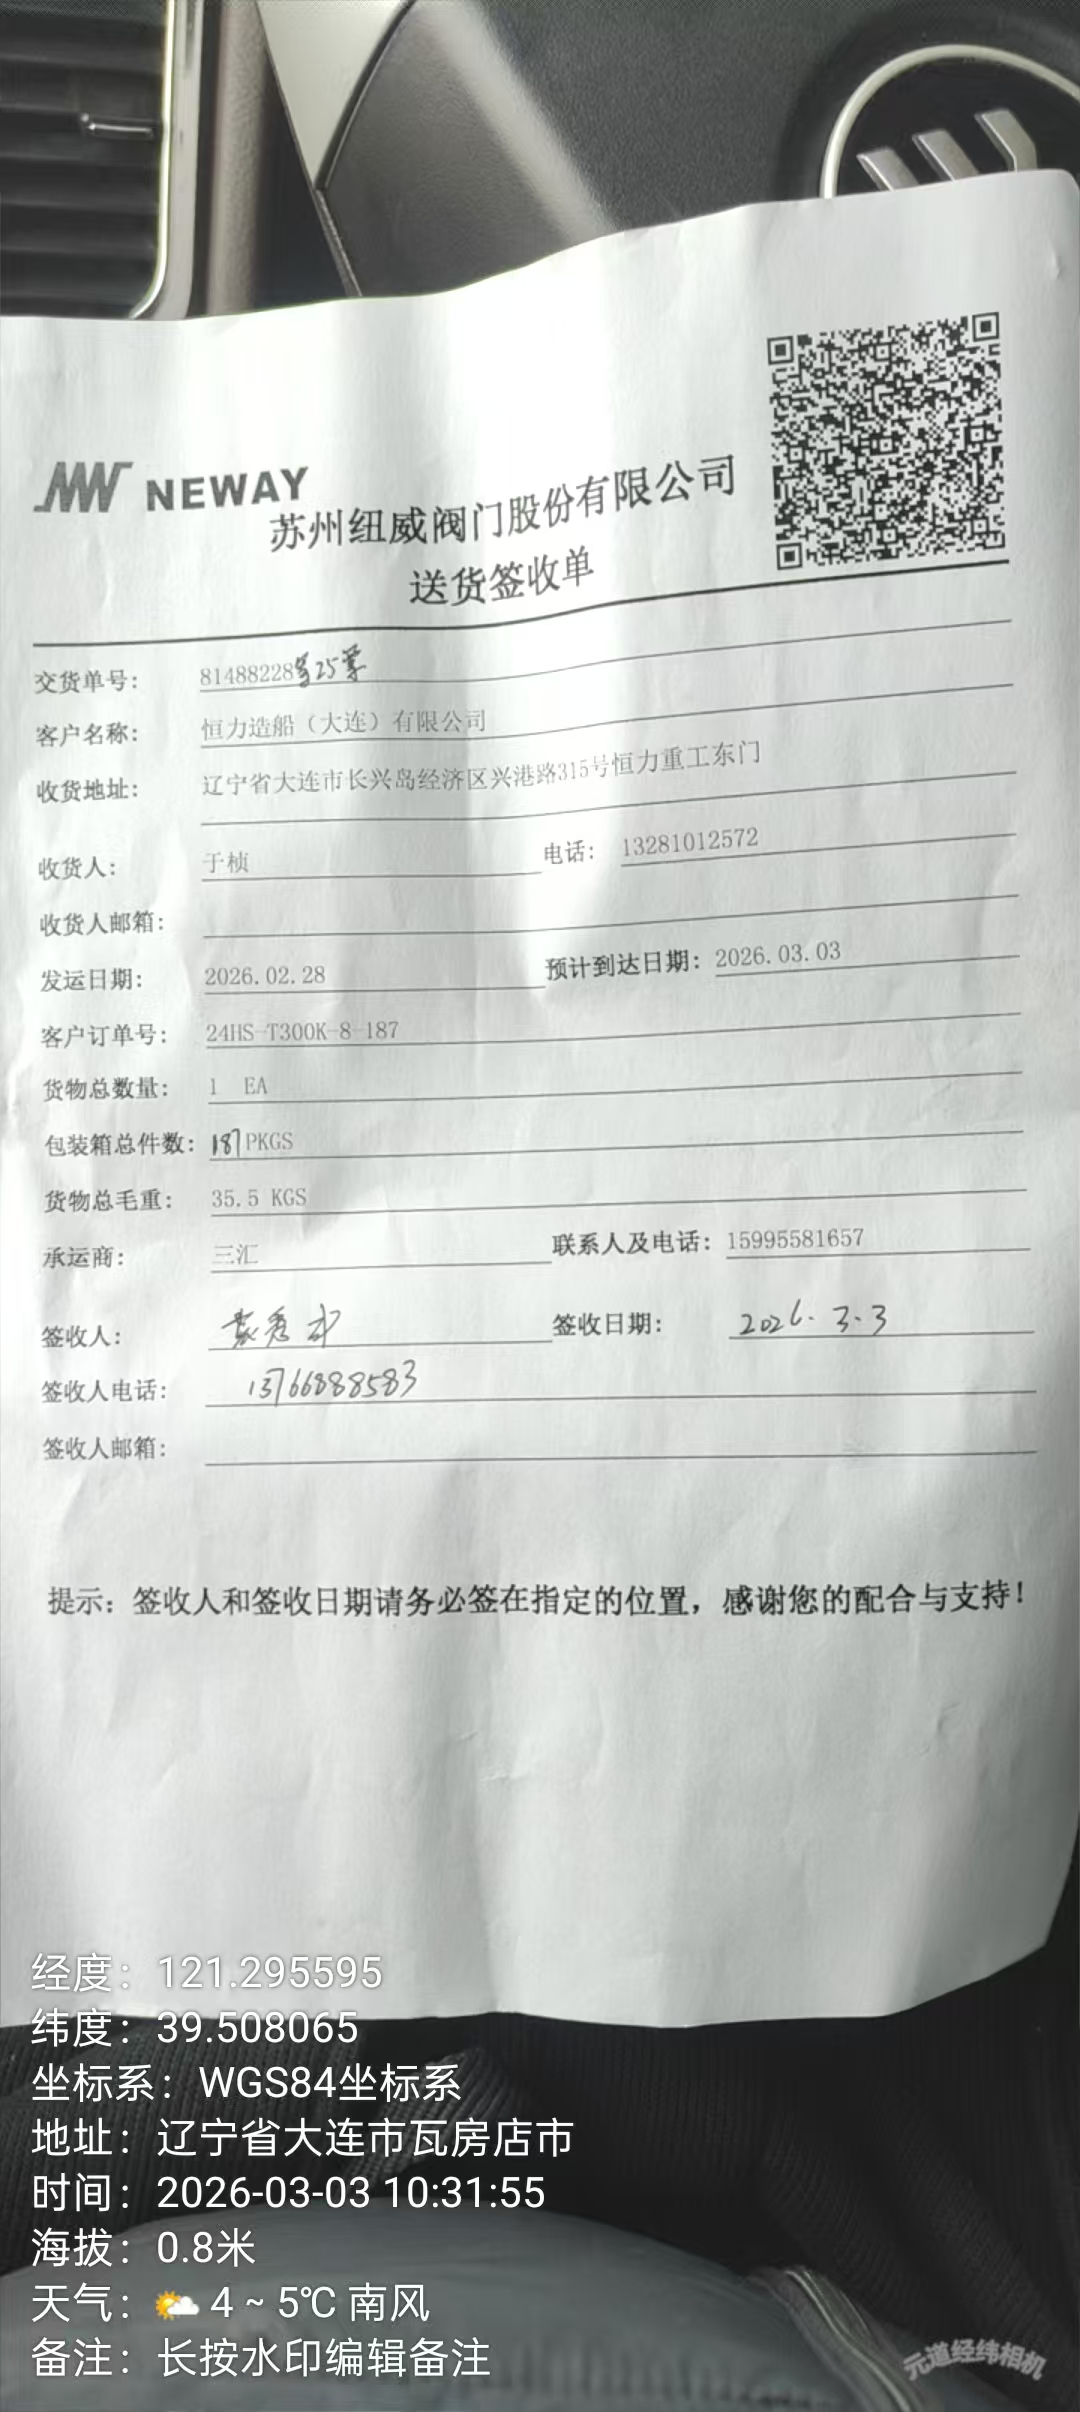 NEWAY
苏州纽威阀门股份有限公司
送货签收单
交货单号: 81488228等25票
客户名称: 恒力造船（大连）有限公司
收货地址: 辽宁省大连市长兴岛经济区兴港路315号恒力重工东门
收货人: 于桢 电话: 13281012572
收货人邮箱:
发运日期: 2026.02.28 预计到达日期: 2026.03.03
客户订单号: 24HS-T300K-8-187
货物总数量: 1 EA
包装箱总件数: 187 PKGS
货物总毛重: 35.5 KGS
承运商: 三汇 联系人及电话: 15995581657
签收人: 签收日期: 2026.3.3
签收人电话: 13766888583
签收人邮箱:
提示: 签收人和签收日期请务必签在指定的位置，感谢您的配合与支持！
经度：121.295595
纬度：39.508065
坐标系：WGS84坐标系
地址：辽宁省大连市瓦房店市
时间：2026-03-03 10:31:55
海拔：0.8米
天气：4 ~ 5℃ 南风
备注：长按水印编辑备注
元道经纬相机